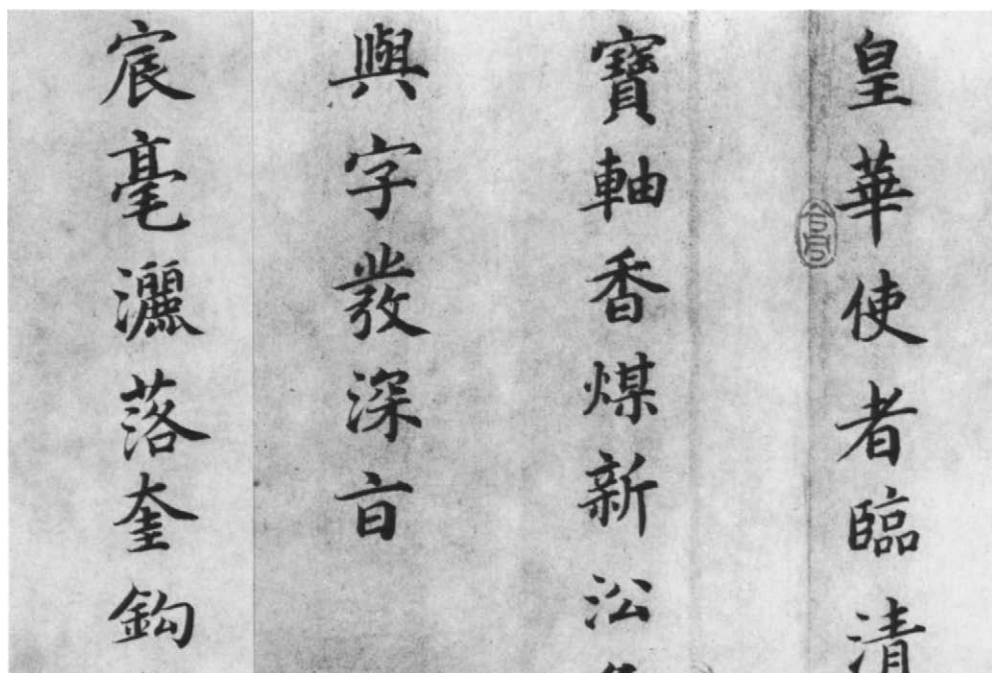 皇華使者臨清
寶軸香煤新㳂
與字發深㫖
宸毫灑落奎鈎